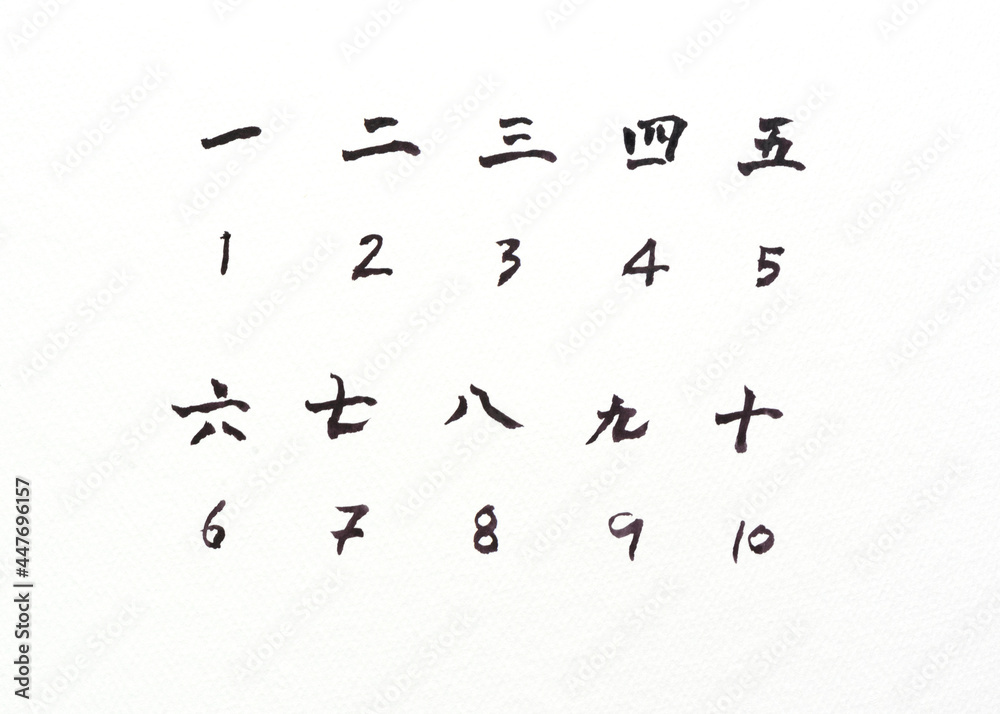 一 二 三 四 五
1 2 3 4 5
六 七 八 九 十
6 7 8 9 10
Adobe Stock | #447696157